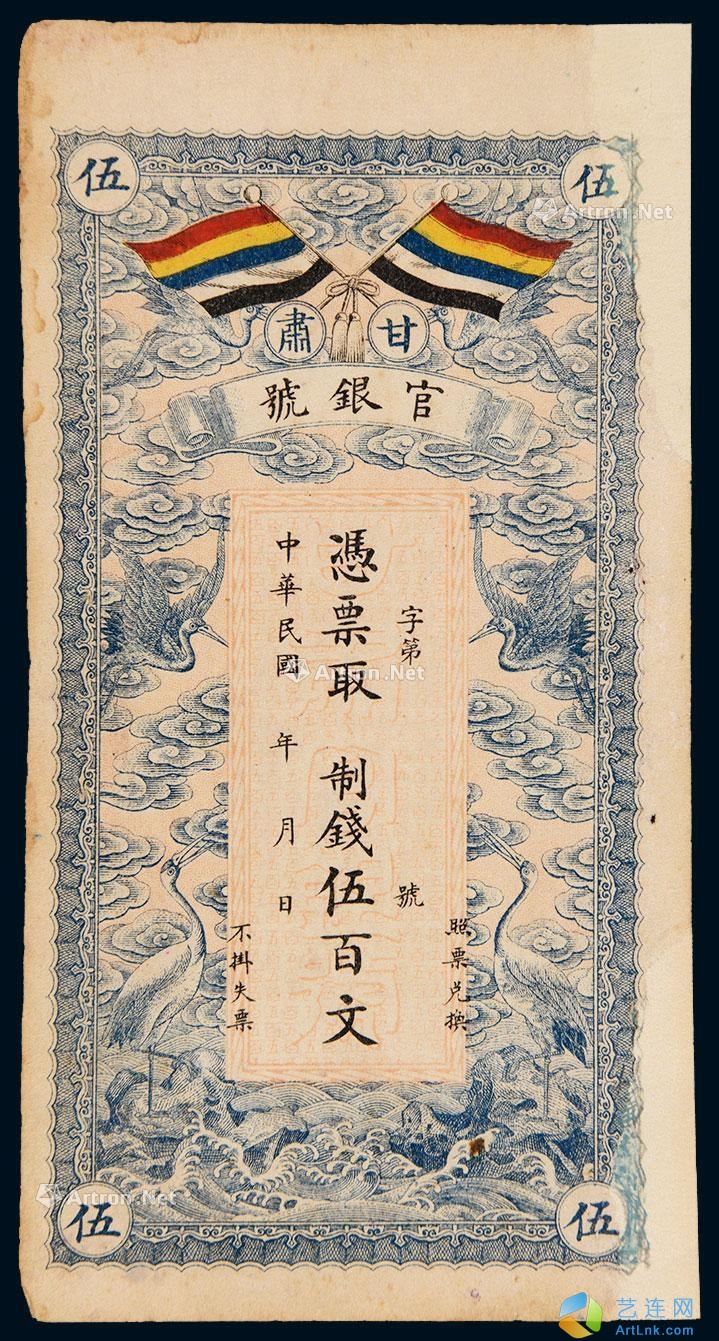 伍
伍
甘肅
官銀號
照票兌換
字第 號
憑票取 制錢伍百文
中華民國 年 月 日
不掛失票
伍
伍
Artron.Net
Artron.Net
Artron.Net
Artron.Net
艺连网
ArtLnk.com